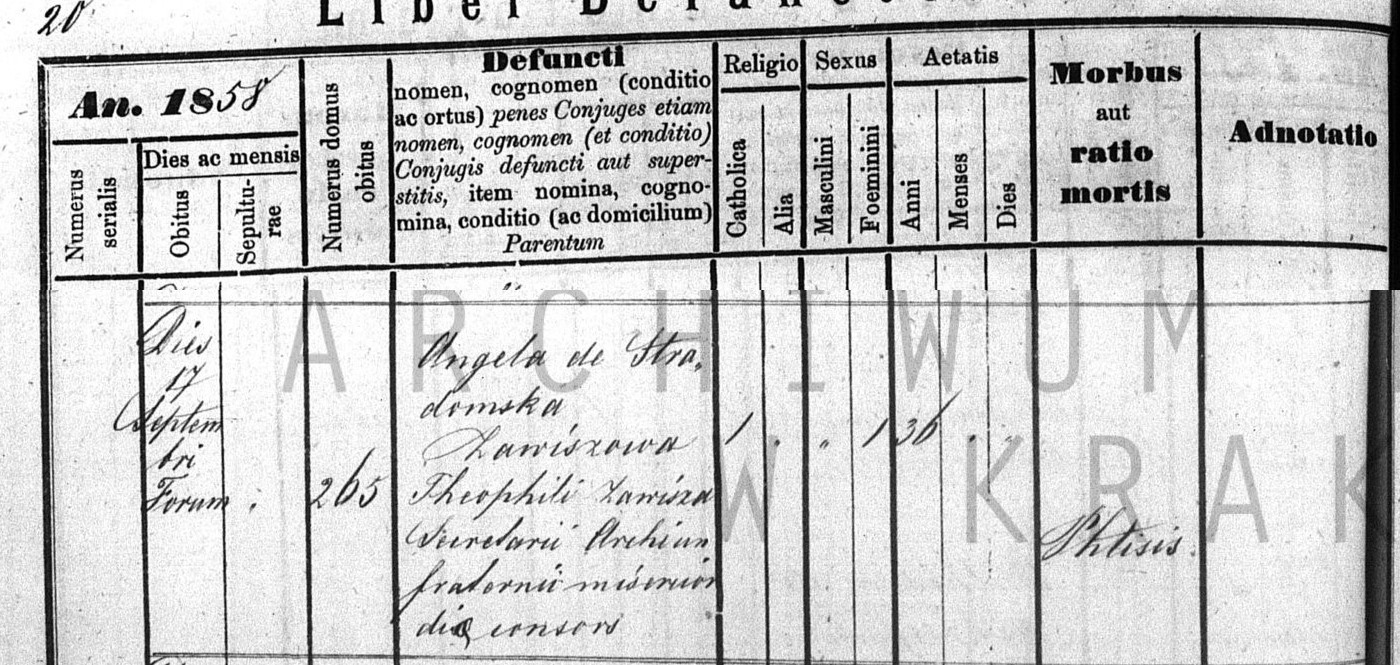 20
An. 1858
Numerus serialis
Dies ac mensis
Obitus
Sepultu-
rae
Numerus domus
obitus
Defuncti
nomen, cognomen (conditio
ac ortus) penes Conjuges etiam
nomen, cognomen (et conditio)
Conjugis defuncti aut super-
stitis, item nomina, cogno-
mina, conditio (ac domicilium)
Parentum
Religio
Catholica
Alia
Sexus
Masculini
Foeminini
Aetatis
Anni
Menses
Dies
Morbus
aut
ratio
mortis
Adnotatio
ARCHIWUM
W KRAK
Dies
17
Septem
bri
Forum
265
Angela de Stra-
domska
Zawiszowa
Theophili Zawisza
Secretarii Archicon
fraternii misericor
diae consors
1 . „ 1 36 . „
Phtisis.